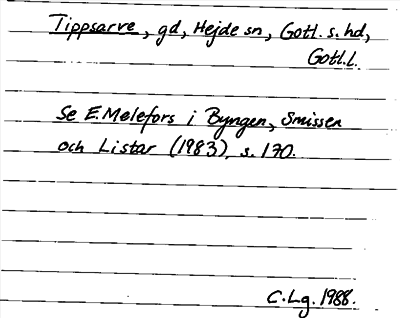 Tippsarve, gd, Hejde sn, Gotl. s. hd,
Gotl.l.
Se E. Melefors i Byngen, Smissen
och Listar (1983), s. 170.
C.Lg. 1988.